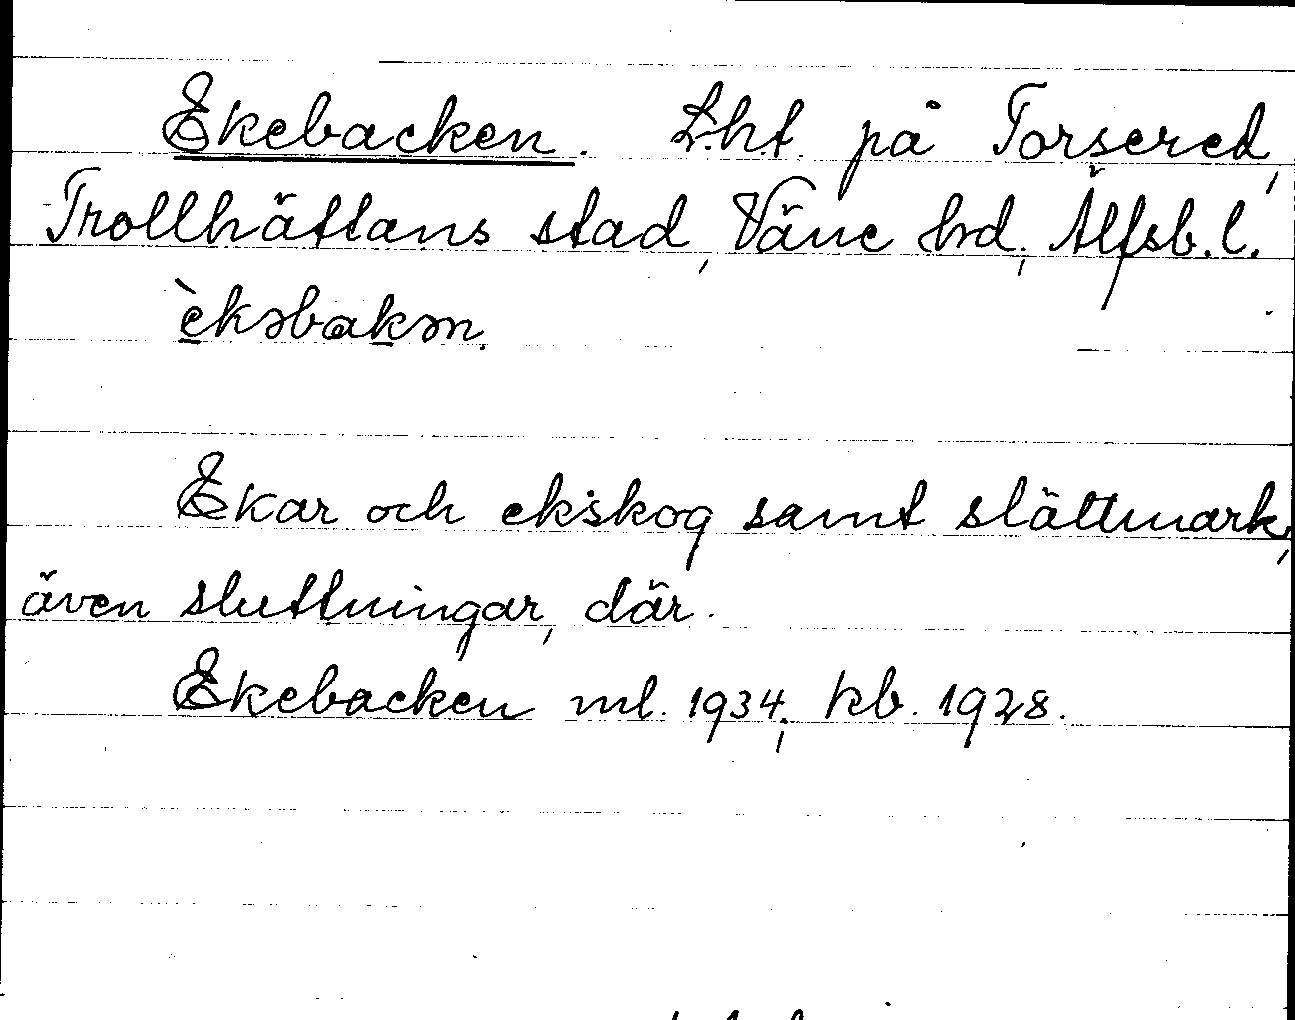 Ekebacken. Lht på Torsered,
Trollhättans stad, Väne hd, Älfsb. l.
èkəbakən.
Ekar och ekskog samt slättmark,
även sluttningar, där.
Ekebacken ml. 1934; kb. 1928.